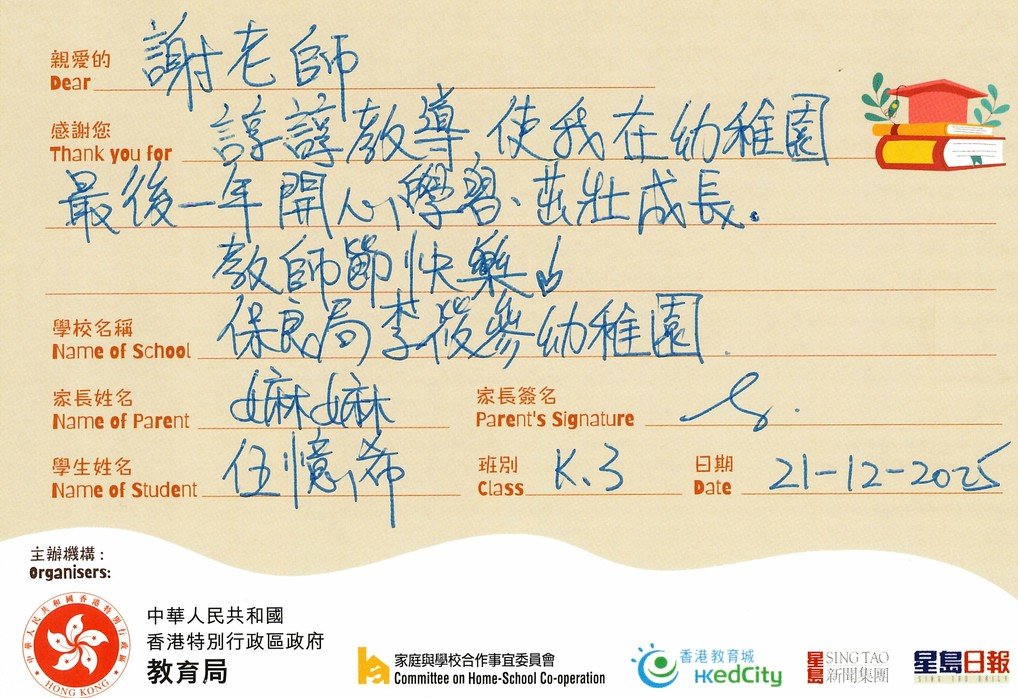 親愛的 謝老師
Dear
感謝您 諄諄教導,使我在幼稚園
Thank you for
最後一年開心學習、茁壯成長。
教師節快樂
學校名稱 保良局李筱參幼稚園
Name of School
家長姓名 嫲嫲 家長簽名
Name of Parent Parent's Signature
學生姓名 伍憶俙 班別 K.3 日期 21-12-2025
Name of Student Class Date
主辦機構:
Organisers:
中華人民共和國香港特別行政區
HONG KONG
中華人民共和國
香港特別行政區政府
教育局
家庭與學校合作事宜委員會
Committee on Home-School Co-operation
香港教育城
HKedCity
星島 SING TAO
新聞集團
星島日報
SING TAO DAILY